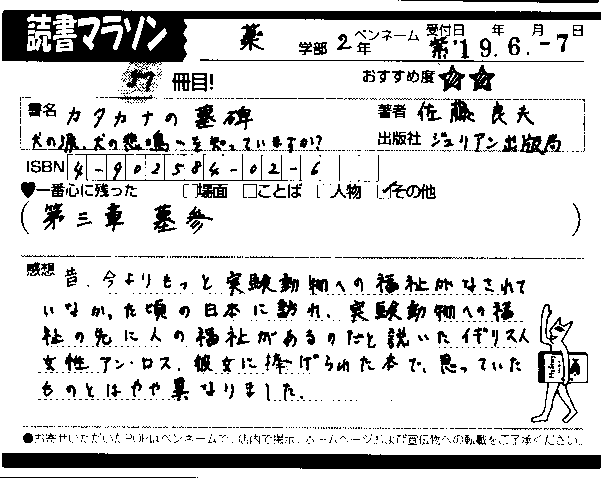 読書マラソン
薬 学部 2年 ペンネーム 紫 受付日 年 月 日 '19.6.-7
57 冊目! おすすめ度 ☆☆
書名 カタカナの墓碑 著者 佐藤良夫
犬の涙、犬の悲鳴…を知っていますか!? 出版社 ジュリアン出版局
ISBN 4-902584-02-6
♥一番心に残った □場面 □ことば □人物 ☑その他
(第三章 墓参)
感想 昔、今よりもっと実験動物への福祉がなされて
いなかった頃の日本に訪れ、実験動物への福
祉の先に人の福祉があるのだと説いたイギリス人
女性アン・ロス。彼女に捧げられた本で、思っていた
ものとはやや異なりました。
●お寄せいただいたPOPはペンネームで、店内で掲示、ホームページおよび宣伝物への転載をご了承ください。